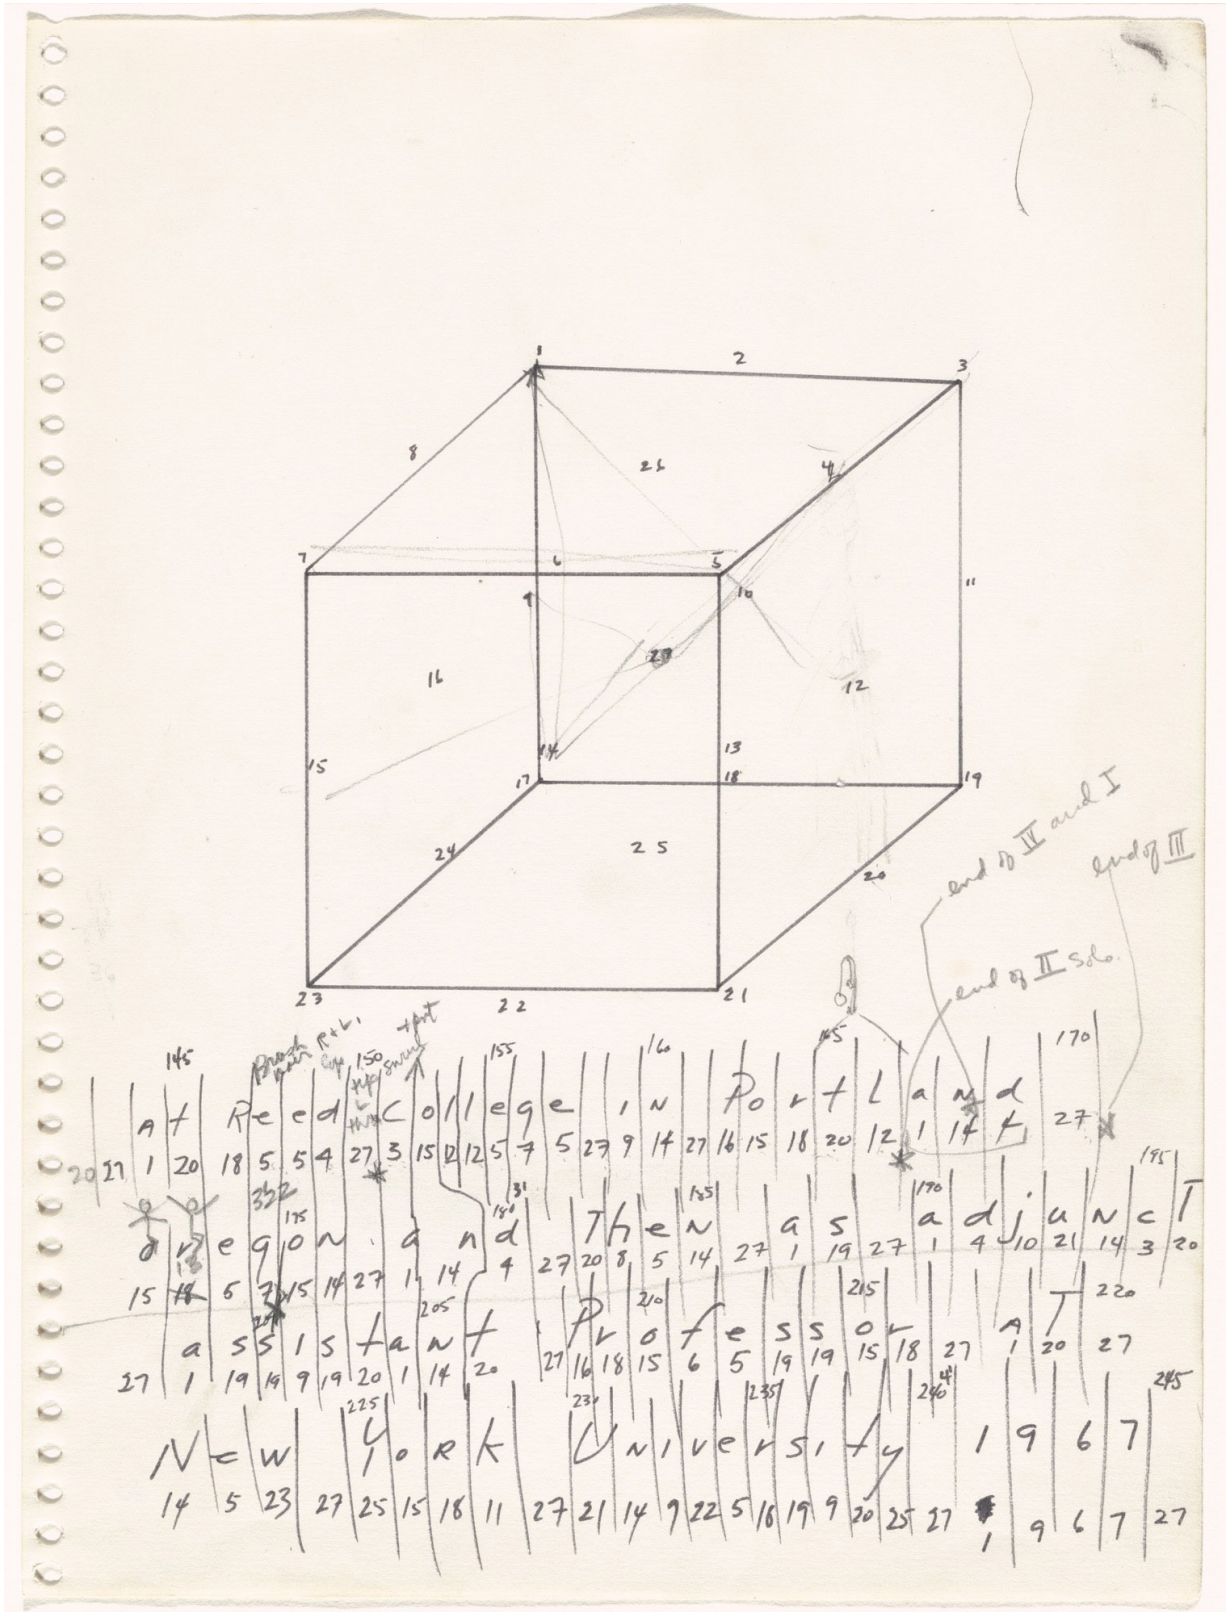 1
2
3
8
26
4
7
6
5
9
10
11
27
16
12
14
13
15
17
18
19
24
25
20
23
22
21
end of IV and I
end of III
end of II solo.
Brush R+L,
145 150 155 160 165 170
At Reed College in Portland
20 27 1 20 18 5 5 4 27 3 15 12 12 5 7 5 27 9 14 27 16 15 18 20 12 1 14 4 27
322 31
175 180 185 190 195
oregon and Then as adjuncT
15 18 5 7 15 14 27 1 14 4 27 20 8 5 14 27 1 19 27 1 4 10 21 14 3 20
205 210 215 220
assistant Professor AT
27 1 19 19 9 19 20 1 14 20 27 16 18 15 6 5 19 19 15 18 27 1 20 27
225 230 235 240 245
New York University 1967
14 5 23 27 25 15 18 11 27 21 14 9 22 5 18 19 9 20 25 27 1 9 6 7 27